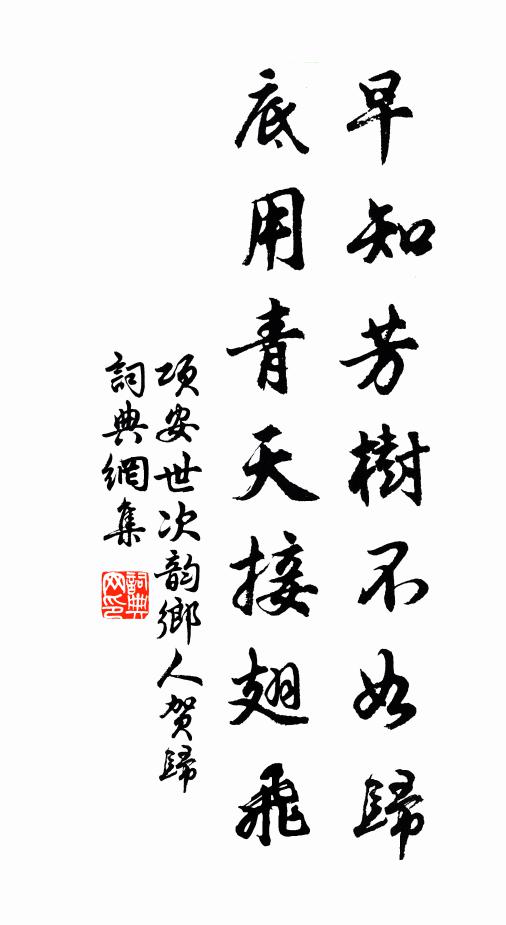 早知芳樹不如歸
底用青天接翅飛
項安世次韵鄉人贺歸
詞典網集
詞典网印